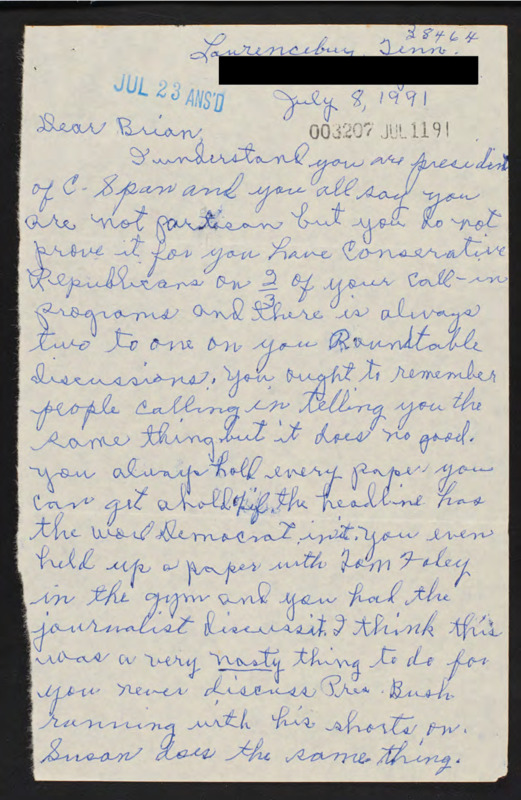 38464
Laurencebug, Tenn.
JUL 23 ANS'D
July 8, 1991
003207 JUL1191
Dear Brian,
I understand you are president
of C-Span and you all say you
are not partison but you do not
prove it, for you have Conserative
Republicans on 2/3 of your call-in
programs and there is always
two to one on you Roundtable
discussions. You ought to remember
people calling in telling you the
same thing but it does no good.
You always hold every paper you
can get ahold of if the headline has
the word Democrat in it. You even
held up a paper with Tom Foley
in the gym and you had the
journalist discuss it. I think this
was a very nasty thing to do for
you never discuss Pres. Bush
running with his shorts on.
Susan does the same thing.